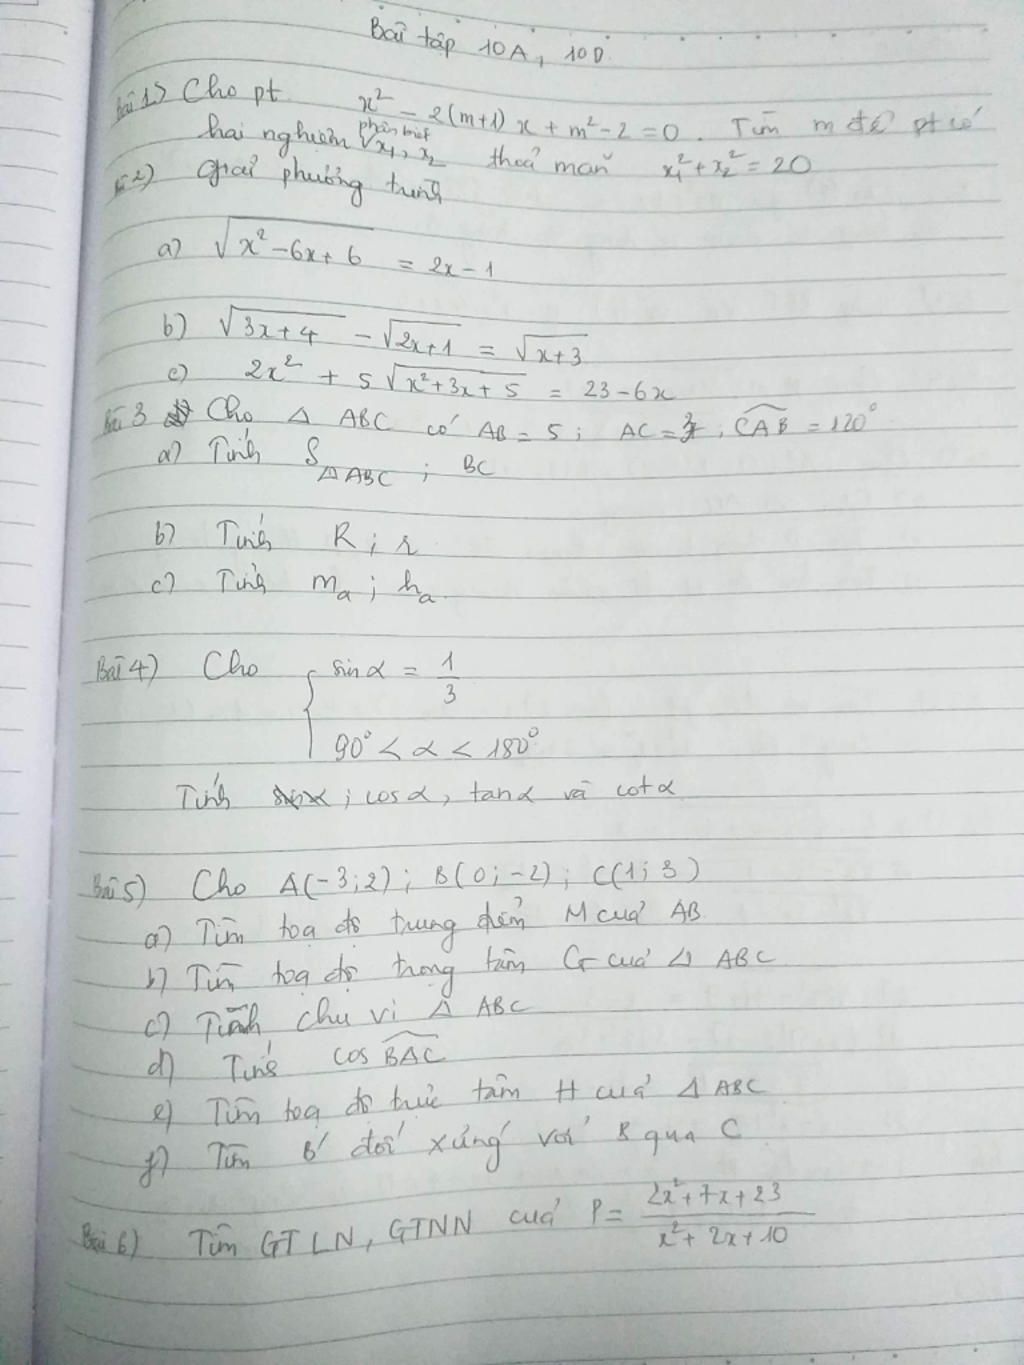 Bài tập 10A, 10D
Bài 1) Cho pt x² - 2(m+1)x + m² - 2 = 0. Tìm m để pt có
hai nghiệm phân biệt x₁, x₂ thoả mãn x₁² + x₂² = 20
2) Giải phương trình
a) √(x² - 6x + 6) = 2x - 1
b) √(3x + 4) - √(2x + 1) = √(x + 3)
c) 2x² + 5√(x² + 3x + 5) = 23 - 6x
Bài 3 Cho △ ABC có AB = 5; AC = ; CAB = 120°
a) Tính S△ABC ; BC
b) Tính R; r
c) Tính mₐ; hₐ.
Bài 4) Cho { sin α = 1/3
90° < α < 180°
Tính ; cos α, tan α và cot α
Bài 5) Cho A(-3; 2); B(0; -2); C(1; 3)
a) Tìm toạ độ trung điểm M của AB
b) Tìm toạ độ trọng tâm G của △ ABC
c) Tính chu vi △ ABC
d) Tính cos BAC
e) Tìm toạ độ trực tâm H của △ ABC
f) Tìm B' đối xứng với B qua C
Bài 6) Tìm GTLN, GTNN của P = (2x² + 7x + 23)/(x² + 2x + 10)